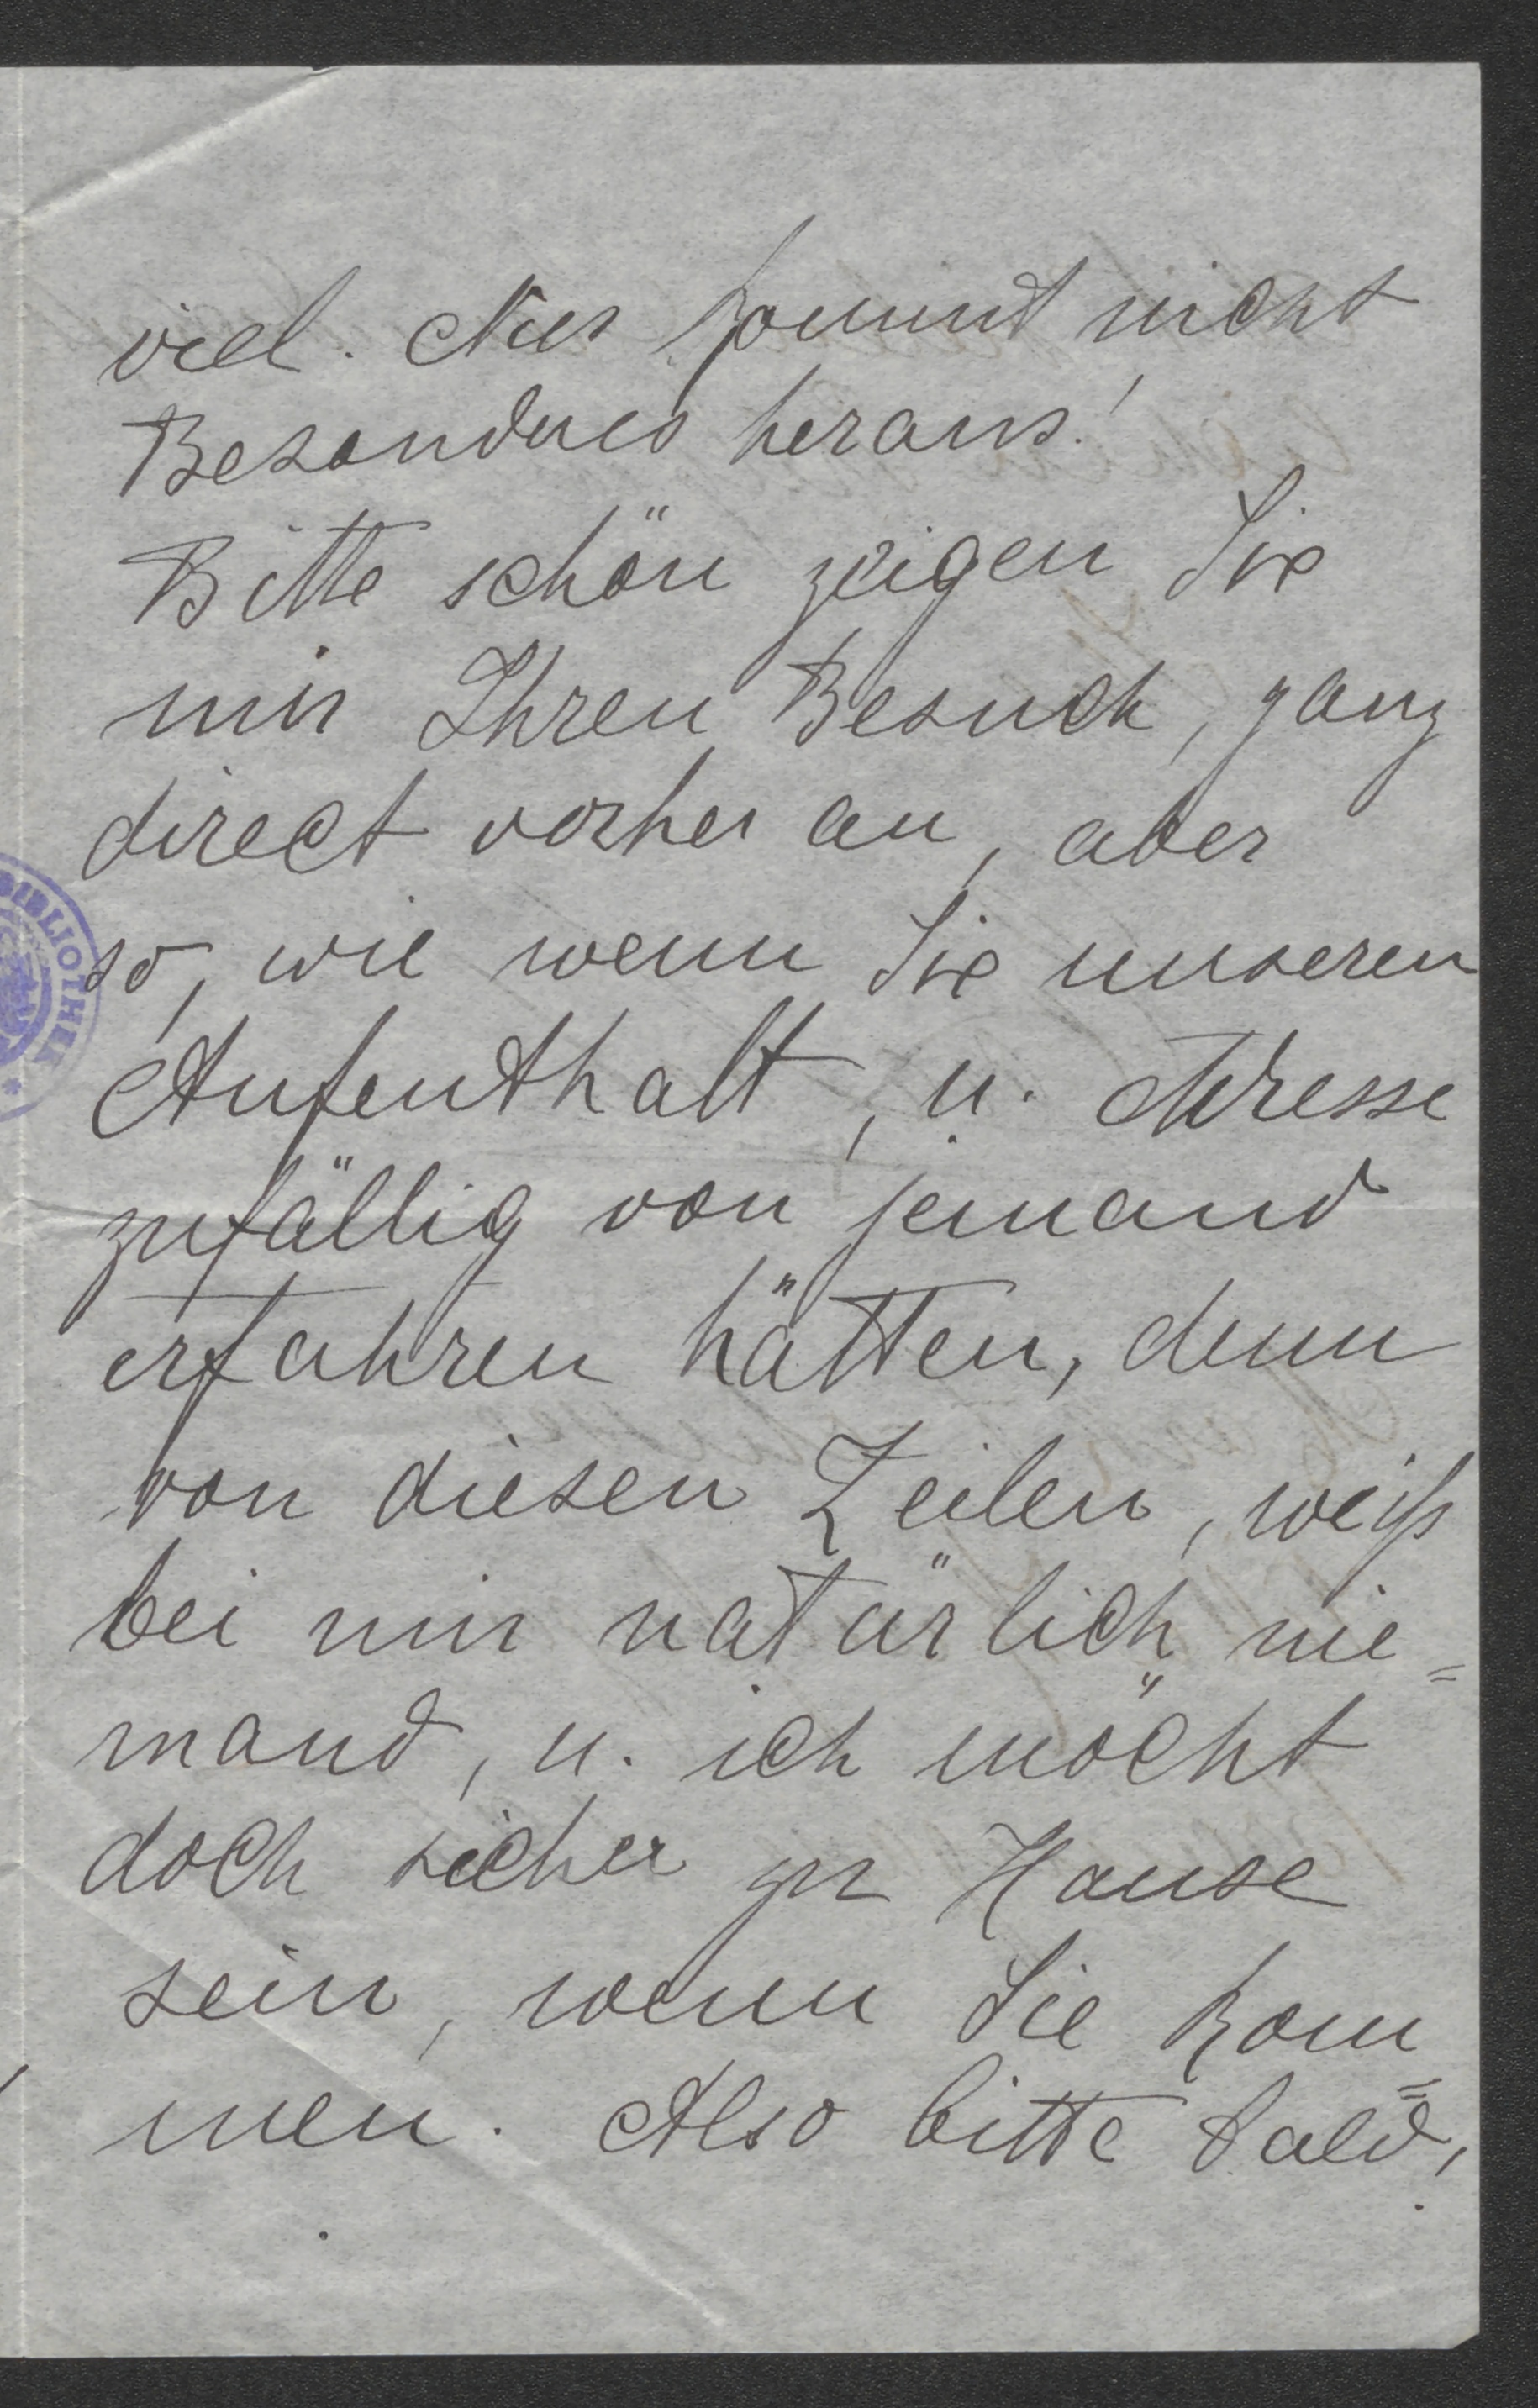 viel. Nur kommt nicht
Besondres heraus!
Bitte schön zeigen Sie
mir Ihren Besuch, ganz
direct vorher an, aber
so, wie wenn Sie unseren
Aufenthalt, u. Adresse
zufällig von jemand
erfahren hätten, denn
von diesen Zeilen, weiß
bei mir natürlich nie=
mand, u. ich möcht
doch sicher zu Hause
sein, wenn Sie kom=
men. Also bitte bald,
BIBLIOTHEK